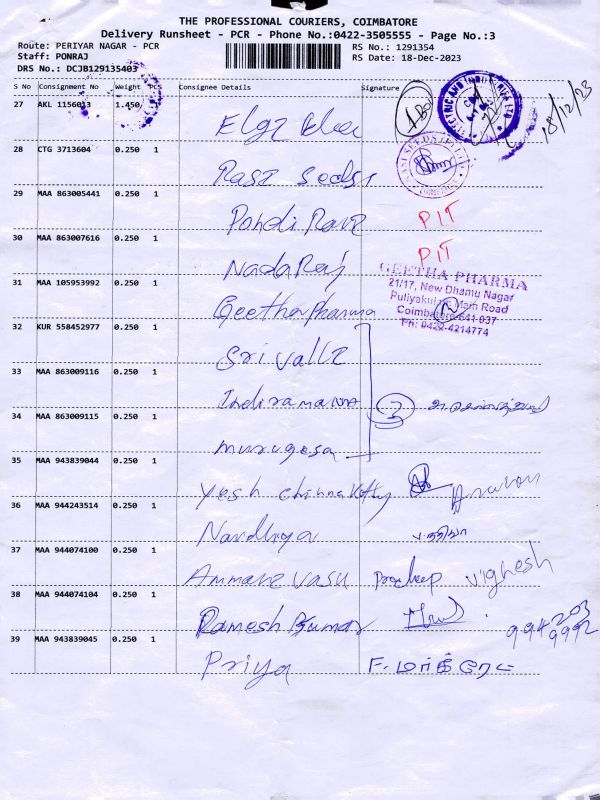 THE PROFESSIONAL COURIERS, COIMBATORE
Delivery Runsheet - PCR - Phone No.:0422-3505555 - Page No.:3
Route: PERIYAR NAGAR - PCR
RS No.: 1291354
Staff: PONRAJ
RS Date: 18-Dec-2023
DRS No.: DCJB129135403
S No Consignment No Weight PCS Consignee Details Signature
27 AKL 1156013 1.450 1
18/12/23
28 CTG 3713604 0.250 1 
29 MAA 863005441 0.250 1 Pondi Rani PIT
30 MAA 863007616 0.250 1 NadaRaj PIT
31 MAA 105953992 0.250 1 Geetha Pharma
GEETHA PHARMA
21/17, New Dhamu Nagar
Puliyakulam Main Road
Coimbatore-641 037
Ph: 0422-4214774
32 KUR 558452977 0.250 1 Sri Valli
33 MAA 863009116 0.250 1 Indiramanna
34 MAA 863009115 0.250 1 murugesa
35 MAA 943839044 0.250 1 Yesh Chinnakutty
36 MAA 944243514 0.250 1 Nandhiya
37 MAA 944074100 0.250 1 Ammani Vasu Pradeep Vighesh
38 MAA 944074104 0.250 1 Ramesh Kumar
39 MAA 943839045 0.250 1 Priya